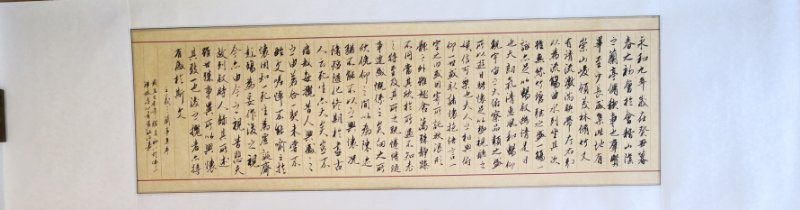 永和九年歲在癸丑暮
春之初會於會稽山陰
之蘭亭脩稧事也群賢
畢至少長咸集此地有
崇山峻領茂林脩竹又
有清流激湍映帶左右引
以為流觴曲水列坐其次
雖無絲竹管絃之盛一觴一
詠亦足以暢敘幽情是日
也天朗氣清惠風和暢仰
觀宇宙之大俯察品類之盛
所以遊目騁懷足以極視聽之
娛信可樂也夫人之相與俯
仰一世或取諸懷抱悟言一
室之內或因寄所託放浪形
骸之外雖趣舍萬殊靜躁
不同當其欣於所遇不知老
之將至及其所之既惓情隨
事遷感慨係之矣向之所
欣俛仰之間以為陳迹
猶不能不以之興懷況
脩短隨化終期於盡古
人云死生亦大矣豈不
痛哉每攬昔人興感
之由若合一契未嘗不
臨文嗟悼不能喻之於
懷固知一死生為虛誕齊
彭殤為妄作後之視
今亦由今之視昔悲夫
故列敘時人錄其所述
雖世殊事異所以興懷
其致一也後之攬者亦將
有感於斯文
王羲之蘭亭集序